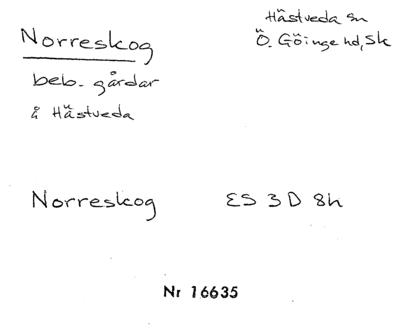 Norreskog
Hästveda sn
Ö. Göinge hd, Sk
beb. gårdar
å Hästveda
Norreskog ES 3 D 8h
Nr 16635